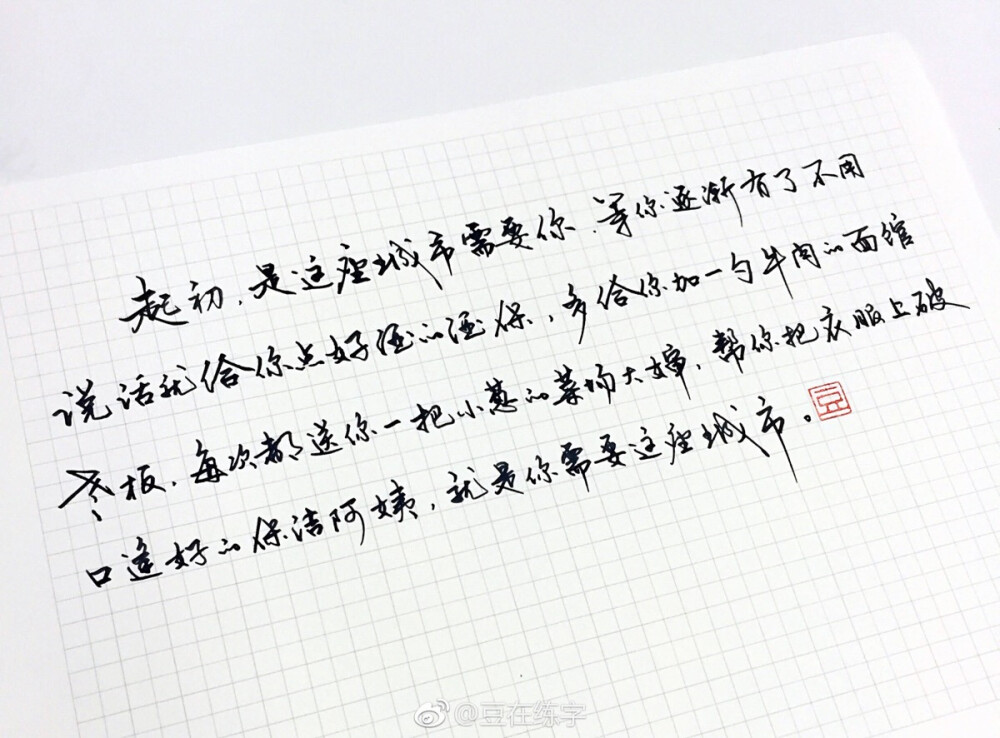 起初，是这座城市需要你，等你逐渐有了不用
说话就给你点好酒的酒保，多给你加一勺牛肉的面馆
老板，每次都送你一把小葱的菜场大婶，帮你把衣服上破
口缝好的保洁阿姨，就是你需要这座城市。
豆
@豆在练字